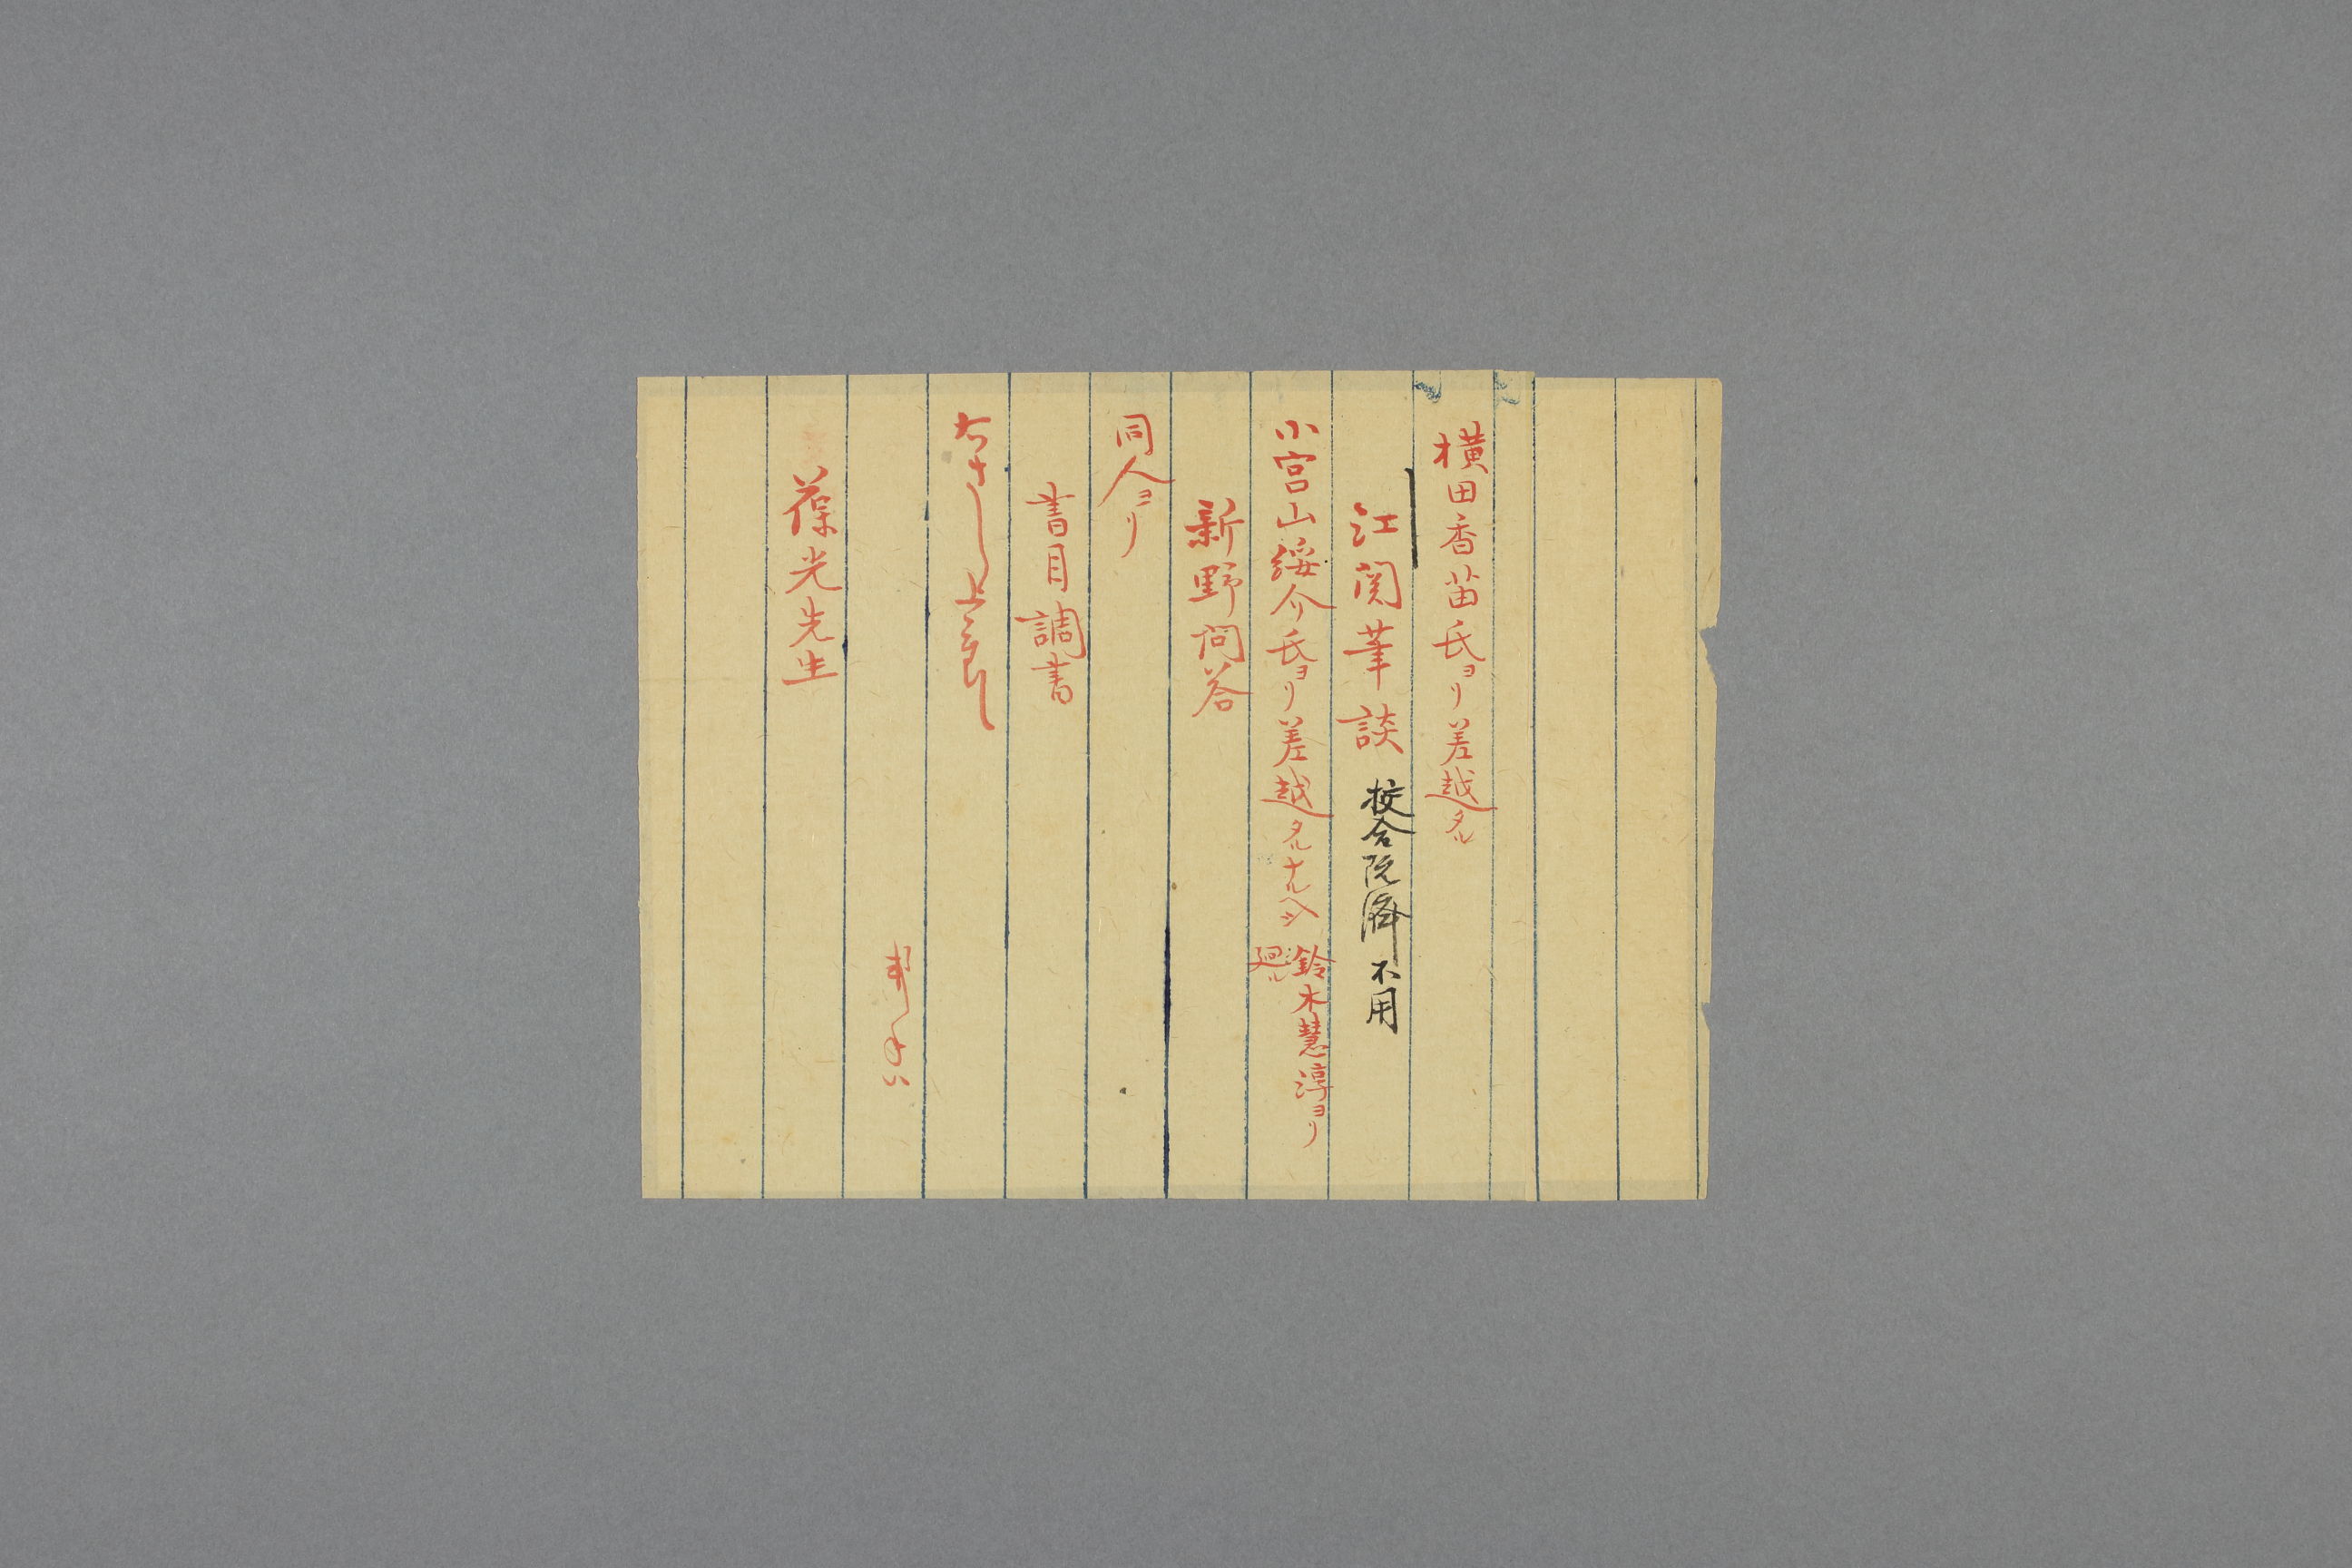 横田香苗氏ヨリ差越タル
江関筆談 校合既済不用
小宮山綏介氏ヨリ差越タルナルヘシ 鈴木慧淳ヨリ
廻ル
新野問答
同人ヨリ
書目調書
右さし上
葆光先生